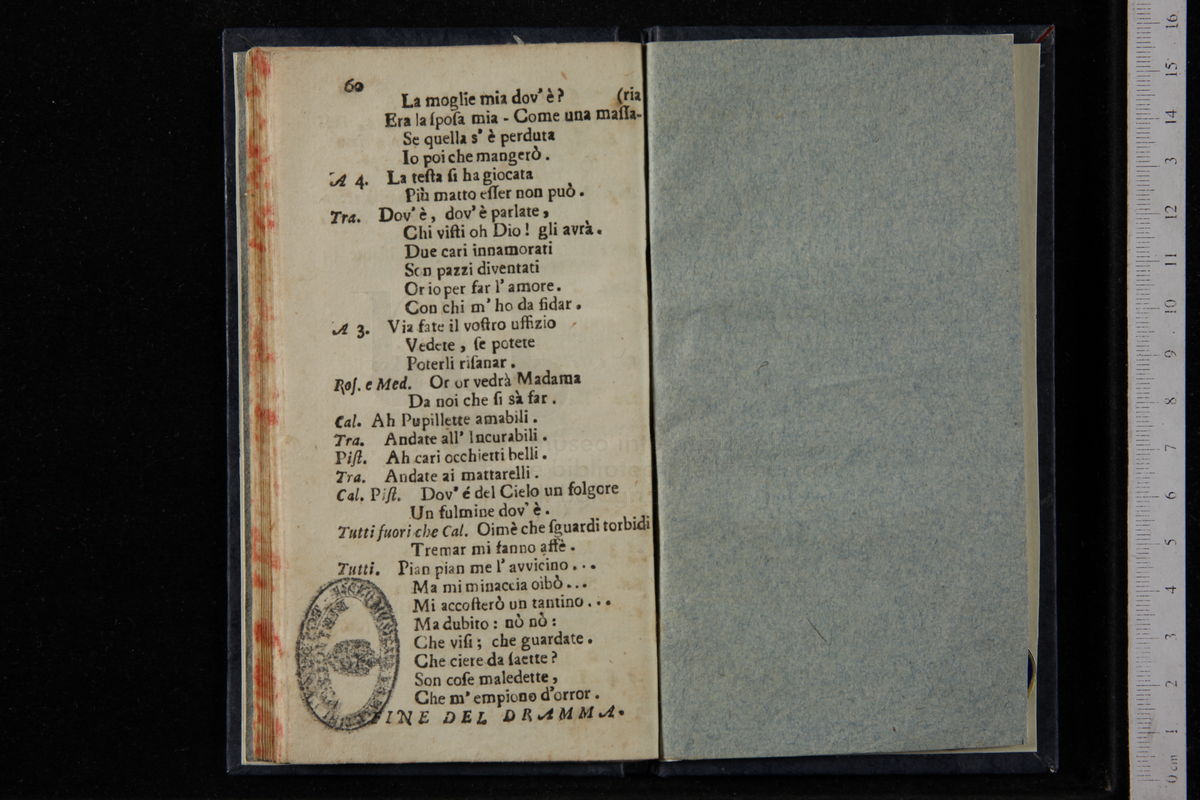 60
La moglie mia dov' è? (ria
Era la ſpoſa mia - Come una maſſa-
Se quella s' è perduta
Io poi che mangerò.
A 4. La teſta ſi ha giocata
Più matto eſſer non può.
Tra. Dov' è, dov' è parlate,
Chi viſti oh Dio! gli avrà.
Due cari innamorati
Son pazzi diventati
Or io per far l' amore.
Con chi m' ho da fidar.
A 3. Via fate il voſtro uffizio
Vedete, ſe potete
Poterli riſanar.
Roſ. e Med. Or or vedrà Madama
Da noi che ſi sà far.
Cal. Ah Pupillette amabili.
Tra. Andate all' Incurabili.
Piſt. Ah cari occhietti belli.
Tra. Andate ai mattarelli.
Cal. Piſt. Dov' é del Cielo un folgore
Un fulmine dov' è.
Tutti fuori che Cal. Oimè che ſguardi torbidi
Tremar mi fanno affè.
Tutti. Pian pian me l' avvicino...
Ma mi minaccia oibò...
Mi accoſterò un tantino...
Ma dubito: nò nò:
Che viſi; che guardate.
Che ciere da ſaette?
Son coſe maledette,
Che m' empiono d'orror.
FINE DEL DRAMMA.
0 cm 1 2 3 4 5 6 7 8 9 10 11 12 3 14 15 16